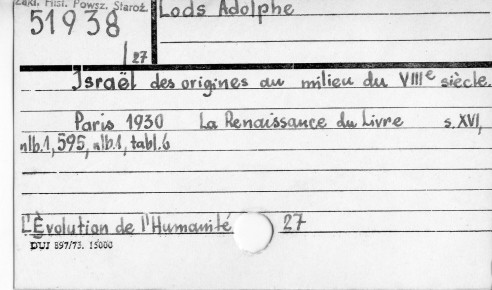 Zakł. Hist. Powsz. Staroż.
51938
/27
Lods Adolphe
Israël des origines au milieu du VIIIe siècle.
Paris 1930 La Renaissance du Livre s. XVI,
nlb.1, 595, nlb.1, tabl.6
L'Évolution de l'Humanité 27
DUJ 897/73. 15000